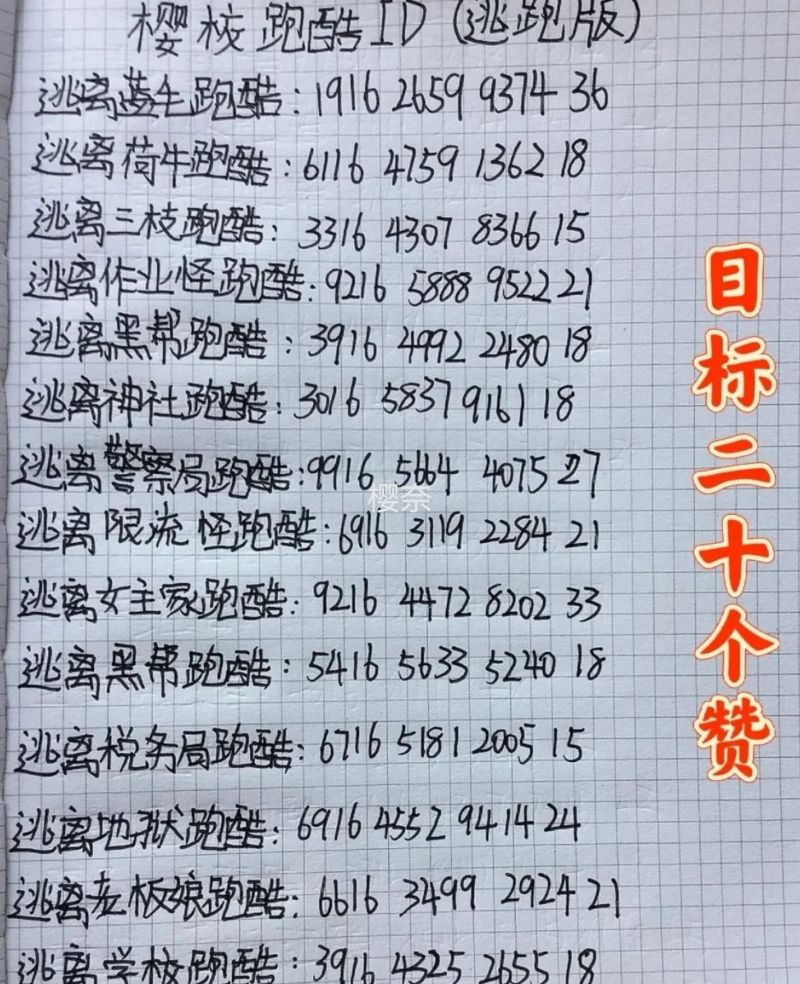 樱校跑酷ID(逃跑版)
逃离蓝牛跑酷:1916 2659 9374 36
逃离荷牛跑酷:6116 4759 1362 18
逃离三枝跑酷:3316 4307 8366 15
逃离作业怪跑酷:9216 5888 9522 21
逃离黑帮跑酷:3916 4992 2480 18
逃离神社跑酷:3016 5837 9161 18
逃离警察局跑酷:9916 5664 4075 27
樱奈
逃离限流怪跑酷:6916 3119 2284 21
逃离女主家跑酷:9216 4472 8202 33
逃离黑帮跑酷:5416 5633 5240 18
逃离税务局跑酷:6716 5181 2005 15
逃离地狱跑酷:6916 4552 9414 24
逃离老板娘跑酷:6616 3499 2924 21
逃离学校跑酷:3916 4325 2655 18
目标二十个赞